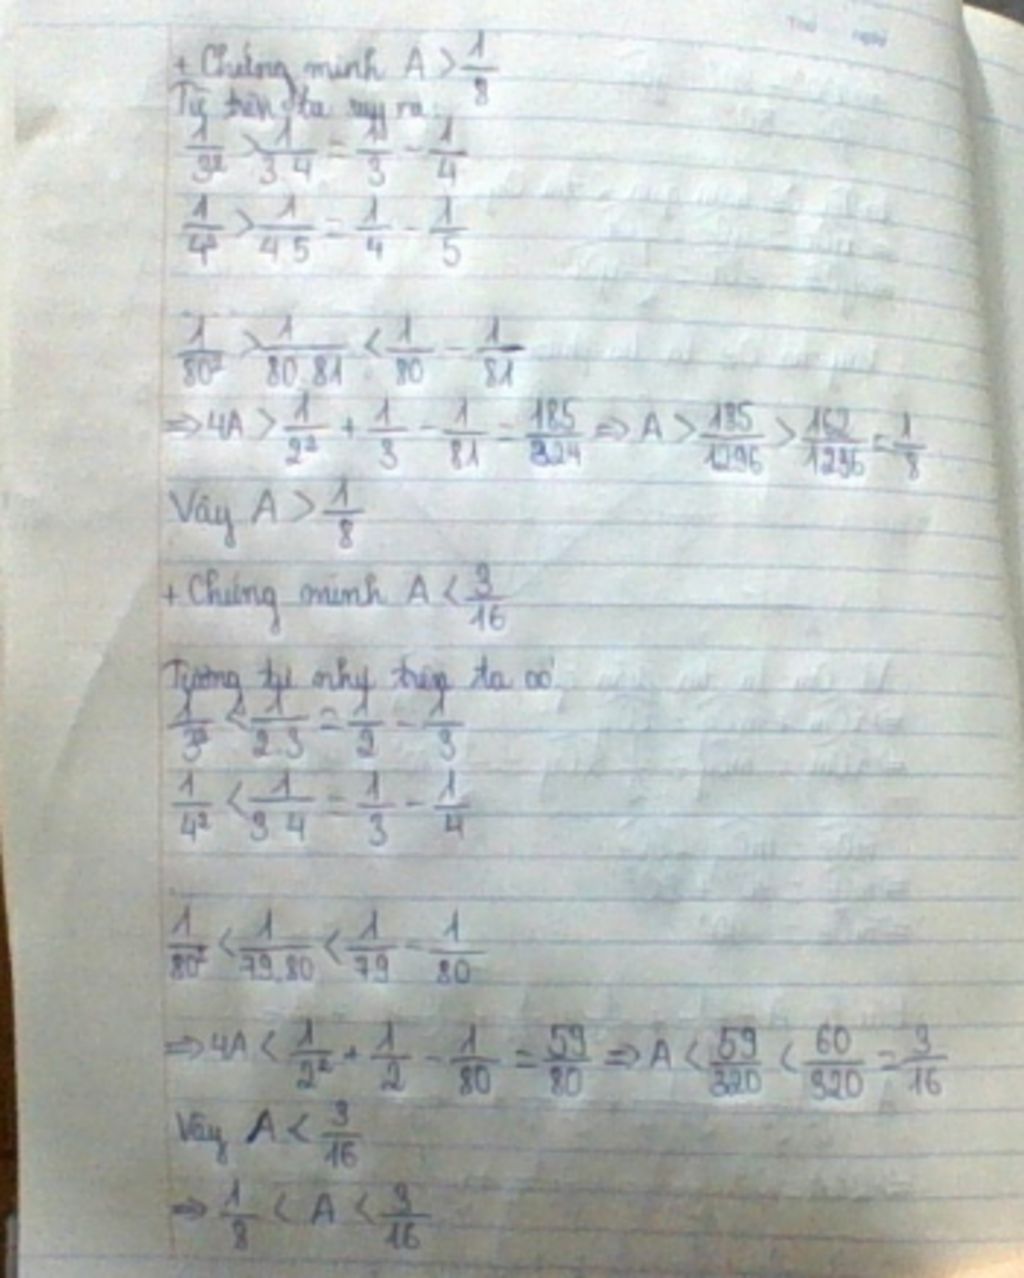 + Chứng minh A > 1/8
Từ trên ta suy ra:
1/3² > 1/3.4 = 1/3 - 1/4
1/4² > 1/4.5 = 1/4 - 1/5
1/80² > 1/80.81 < 1/80 - 1/81
=> 4A > 1/2² + 1/3 - 1/81 = 185/324 => A > 185/1296 > 162/1296 = 1/8
Vậy A > 1/8
+ Chứng minh A < 3/16
Tương tự như trên ta có
1/3² < 1/2.3 = 1/2 - 1/3
1/4² < 1/3.4 = 1/3 - 1/4
1/80² < 1/79.80 < 1/79 - 1/80
=> 4A < 1/2² + 1/2 - 1/80 = 59/80 => A < 59/320 < 60/320 = 3/16
Vậy A < 3/16
=> 1/8 < A < 3/16